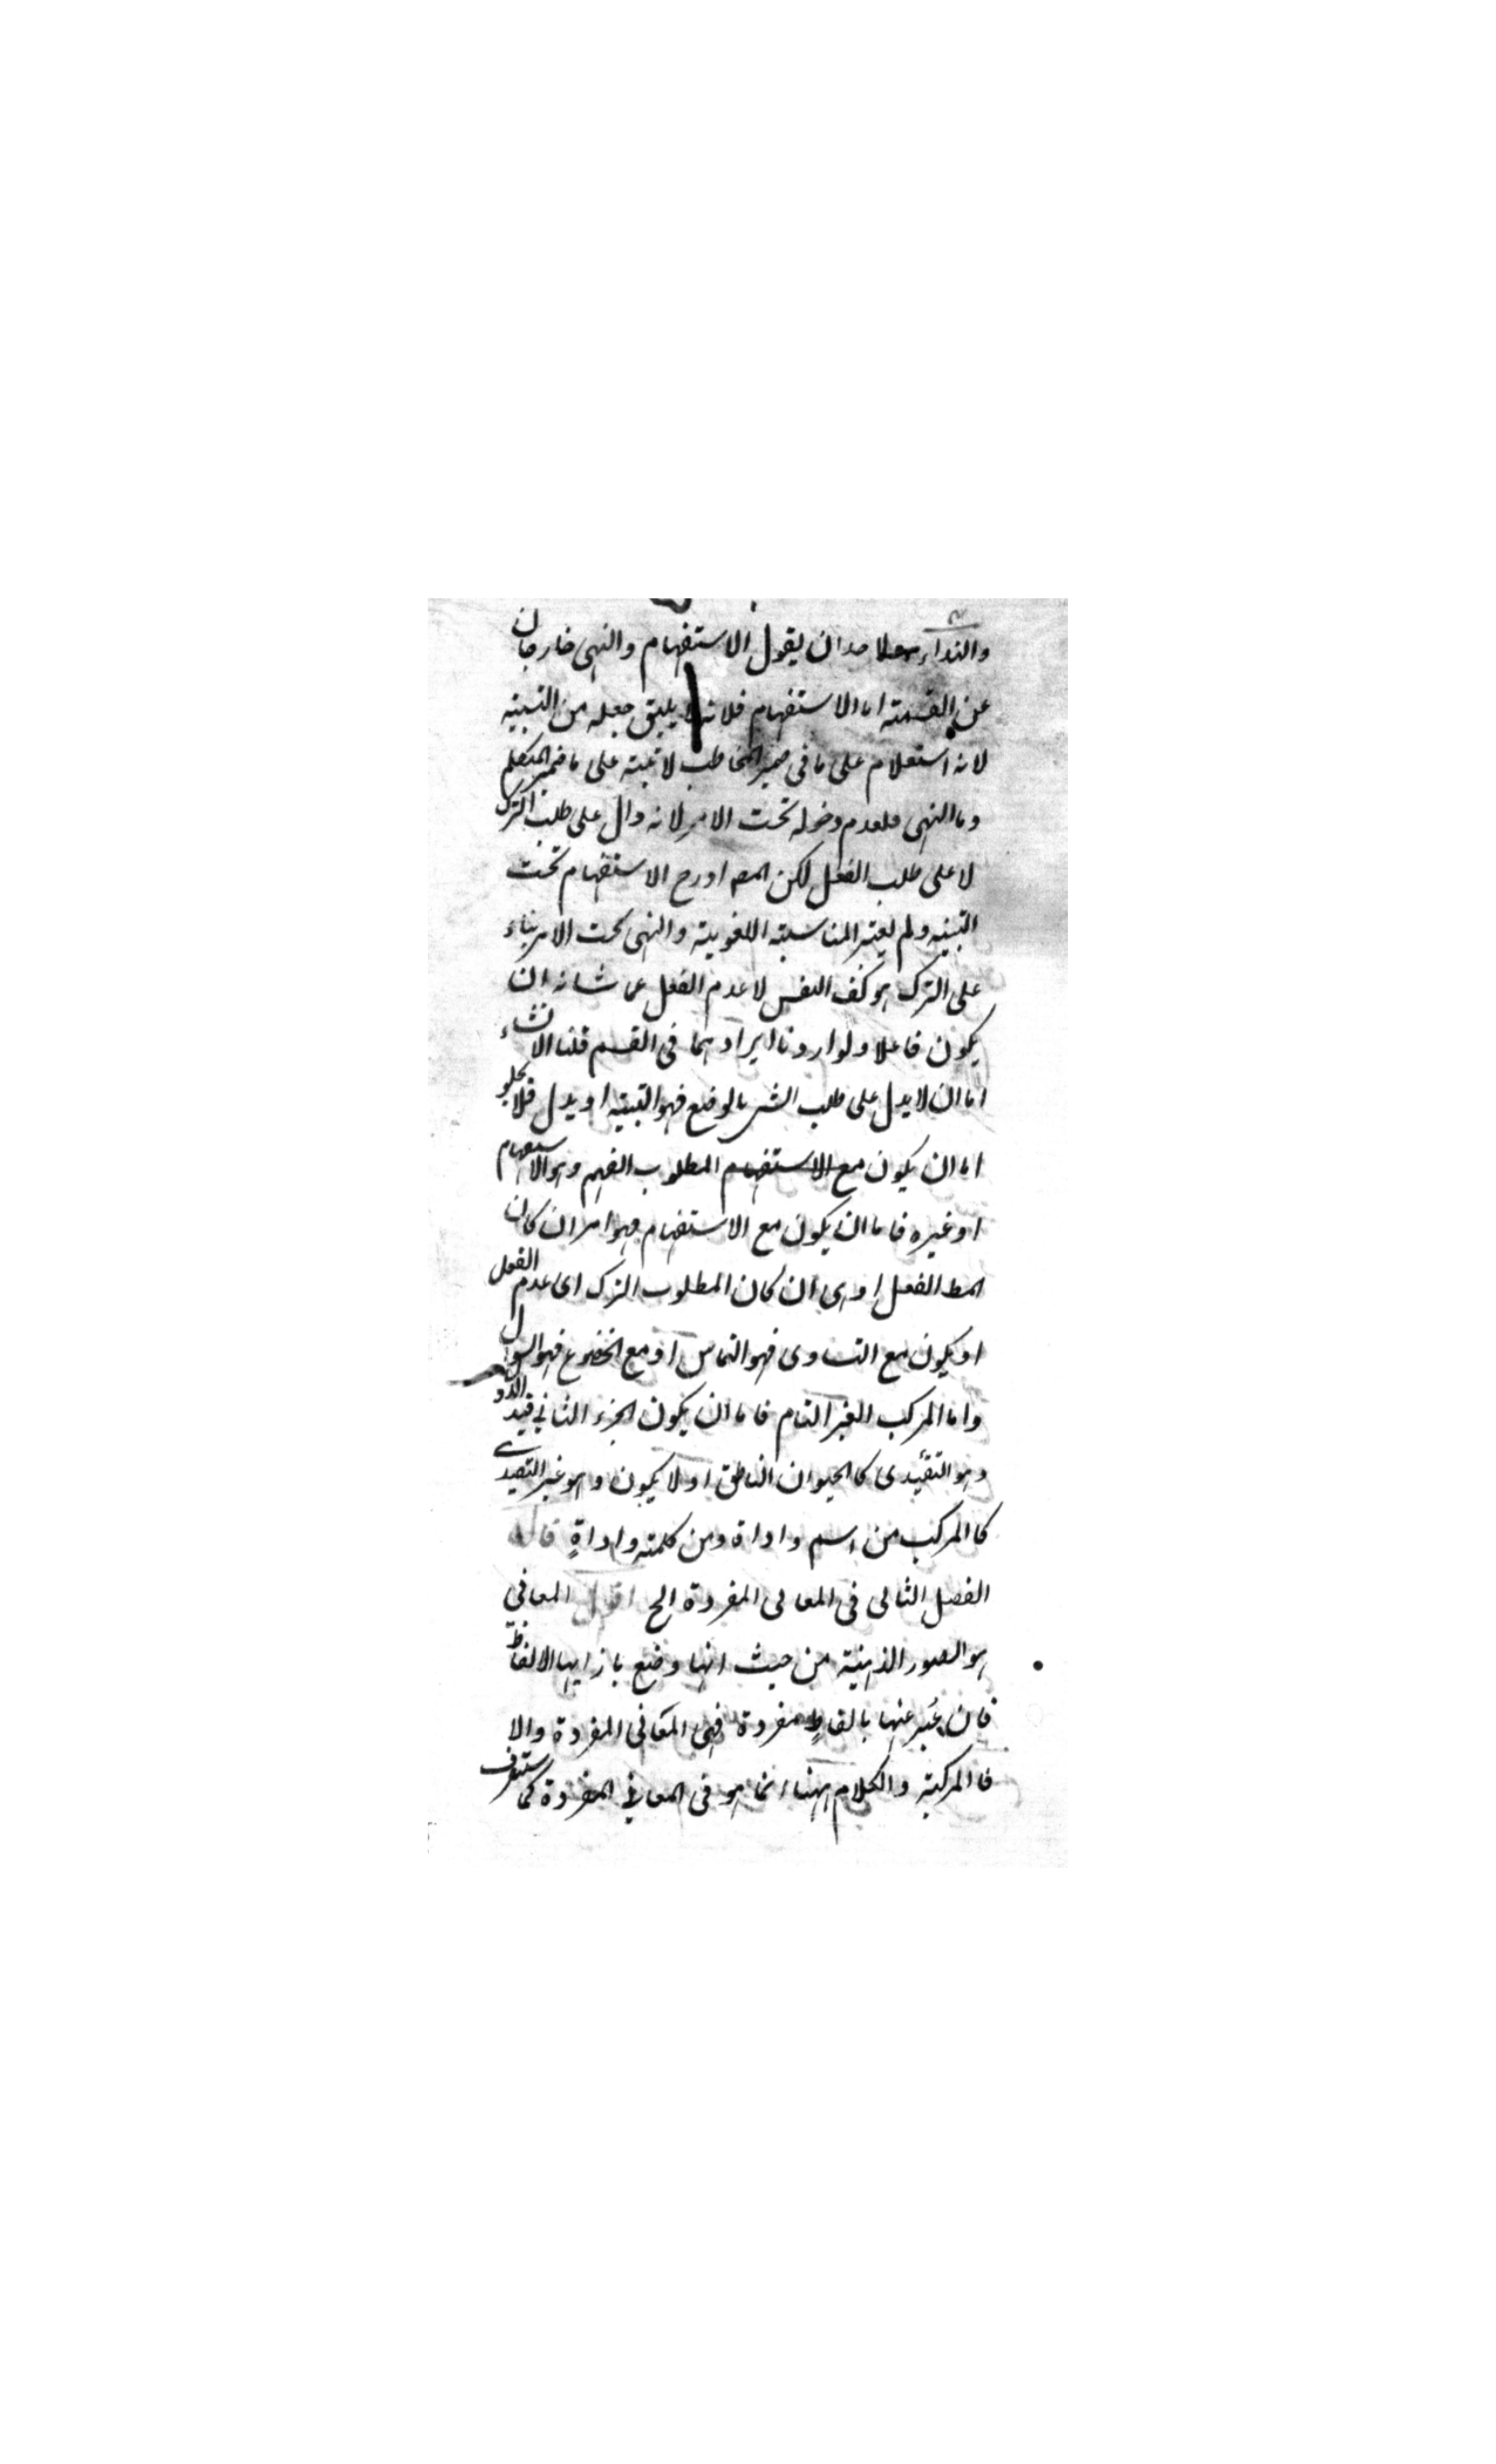 والنداء ولاحد ان يقول الاستفهام والنهى خارجان
عن القسمة اما الاستفهام فلانه لا يليق جعله من التنبيه
لانه استعلام على ما فى ضمير المخاطب لا تنبيه على ما ضمير المتكلم
وما النهى فلعدم دخوله تحت الامر لانه دال على طلب الترك
لا على طلب الفعل لكن المصـ ادرج الاستفهام تحت
التنبيه ولم يعتبر المناسبة اللغوية والنهى تحت الامر بناء
على الترك هو كف النفس لا عدم الفعل عما شانه ان
يكون فاعلا ولو اردنا ايرادهما فى القسم قلنا الانشاء
اما ان لا يدل على طلب الشىء بالوضع فهو التنبيه او يدل فلا يخلو
اما ان يكون مع الاستفهام المطلوب الفهم وهو الاستفهام
او غيره فاما ان يكون مع الاستفهام فهو امر ان كان
المط الفعل او نهى ان كان المطلوب الترك اى عدم الفعل
او يكون مع التساوى فهو التماس او مع الخضوع فهو السوال
واما المركب الغير التام فاما ان يكون الجزء الثانى قيد الاو
وهو التقئيدى كالحيوان الناطق او لا يكون وهو غير التقييدى
كالمركب من اسم واداة ومن كلمة واداةٍ قال
الفصل الثانى فى المعانى المفردة الخ اقول المعانى
هو الصور الذهنية من حيث انها وضع بازايها الالفاظ
فان عُبر عنها بالفاظٍ مفردة فهى المعانى المفردة والا
فالمركبة والكلام ههنا انما هو فى المعانى المفردة كما ستعرف